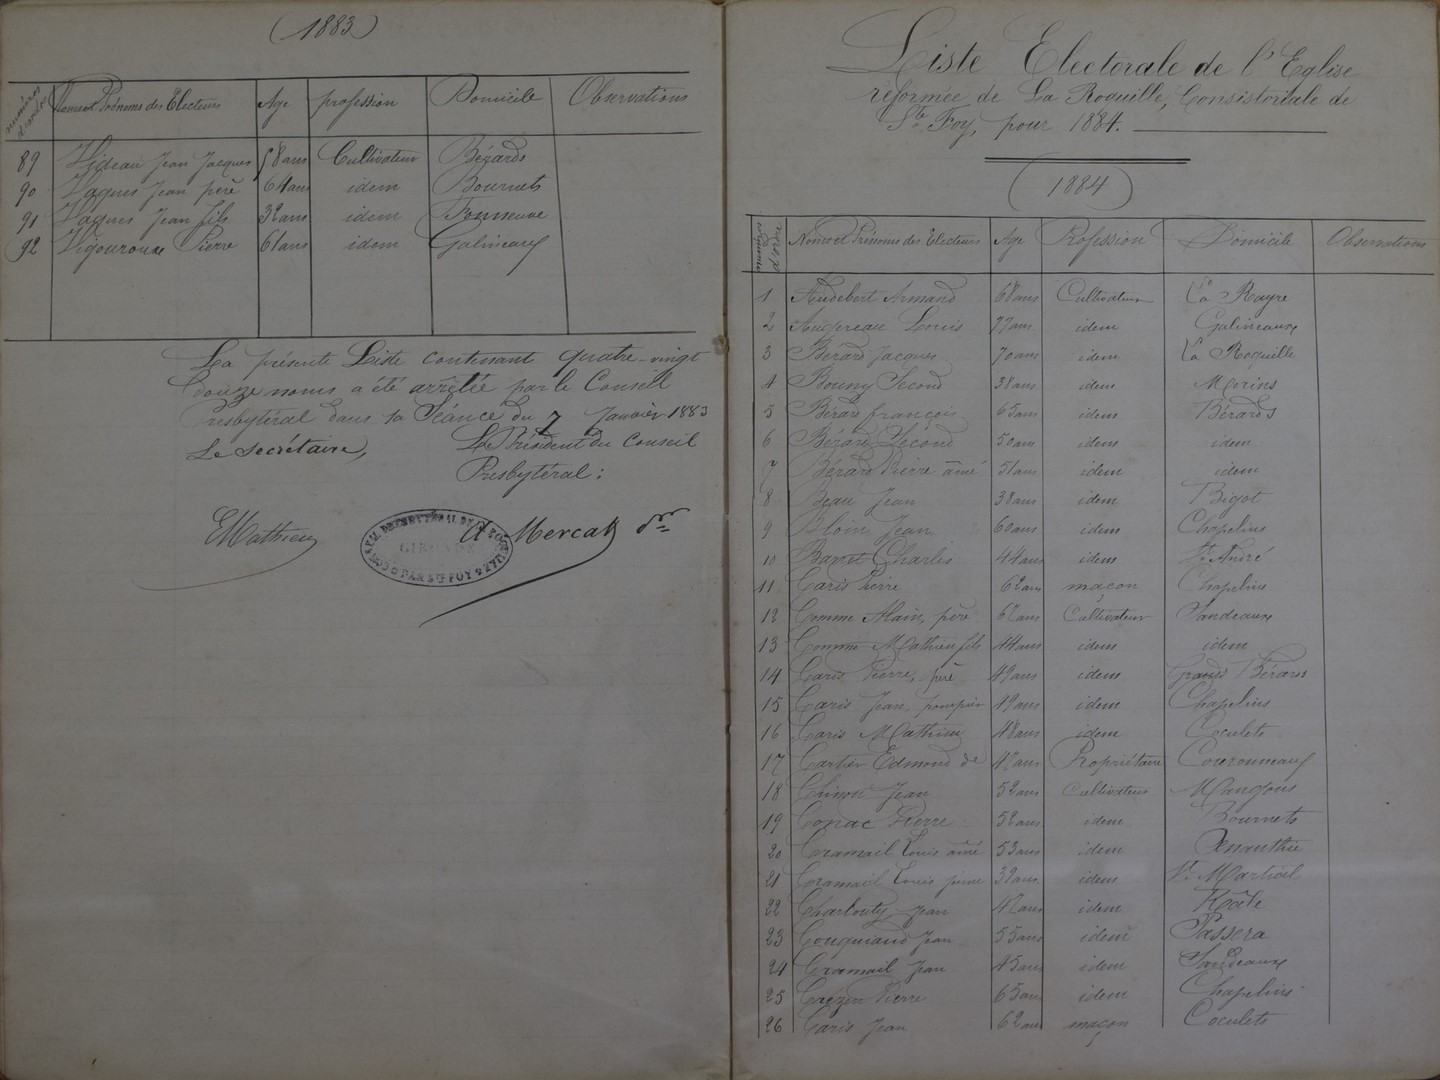 (1883)
numéros d'ordre Noms et Prénoms des Electeurs Age profession Domicile Observations
89 Videau Jean Jacques 58 ans Cultivateur Bérards
90 Vaques Jean père 64 ans idem Bournets
91 Vaques Jean fils 32 ans idem Fonneuve
92 Vigouroux Pierre 61 ans idem Galineaux
La présente Liste contenant quatre-vingt
douze noms a été arrêtée par le Conseil
Presbytéral dans sa Séance du 7 Janvier 1883
Le secrétaire, Le Président du Conseil
Presbytéral:
EMathieu A Mercat
GIRONDE
Liste Electorale de l'Eglise
réformée de La Roquille, Consistoriale de
Ste Foy, pour 1884.
(1884)
numéros d'ordre Noms et Prénoms des Electeurs Age Profession Domicile Observations
1 Audebert Armand 68 ans Cultivateur La Rayre
2 Augereau Louis 77 ans idem Galineaux
3 Bérard Jacques 70 ans idem La Roquille
4 Bouny Second 38 ans idem Morins
5 Bérard françois 65 ans idem Bérards
6 Bérard Sécond 50 ans idem idem
7 Bérard Pierre aîné 51 ans idem idem
8 Beau Jean 38 ans idem Bigot
9 Bloin Jean 60 ans idem Chapelins
10 Charles 44 ans idem St André
11 Caris Pierre 62 ans maçon Chapelins
12 Comme Alain, père 67 ans Cultivateur Jandeaux
13 Comme Mathieu fils 44 ans idem idem
14 Caris Pierre, père 49 ans idem Grands Bérards
15 Caris Jean, pompier 49 ans idem Chapelins
16 Caris Mathieu 48 ans idem Coculets
17 Cartier Edmond de 47 ans Propriétaire Couronneau
18 Chinou Jean 52 ans Cultivateur Mangons
19 Conac Pierre 52 ans idem Bournets
20 Cramail Louis aîné 53 ans idem
21 Cramail Louis jeune 39 ans idem St Martial
22 Jean 47 ans idem
23 Jean 55 ans idem Passera
24 Cramail Jean 45 ans idem Jandeaux
25 Pierre 65 ans idem Chapelins
26 Caris Jean 62 ans maçon Coculets